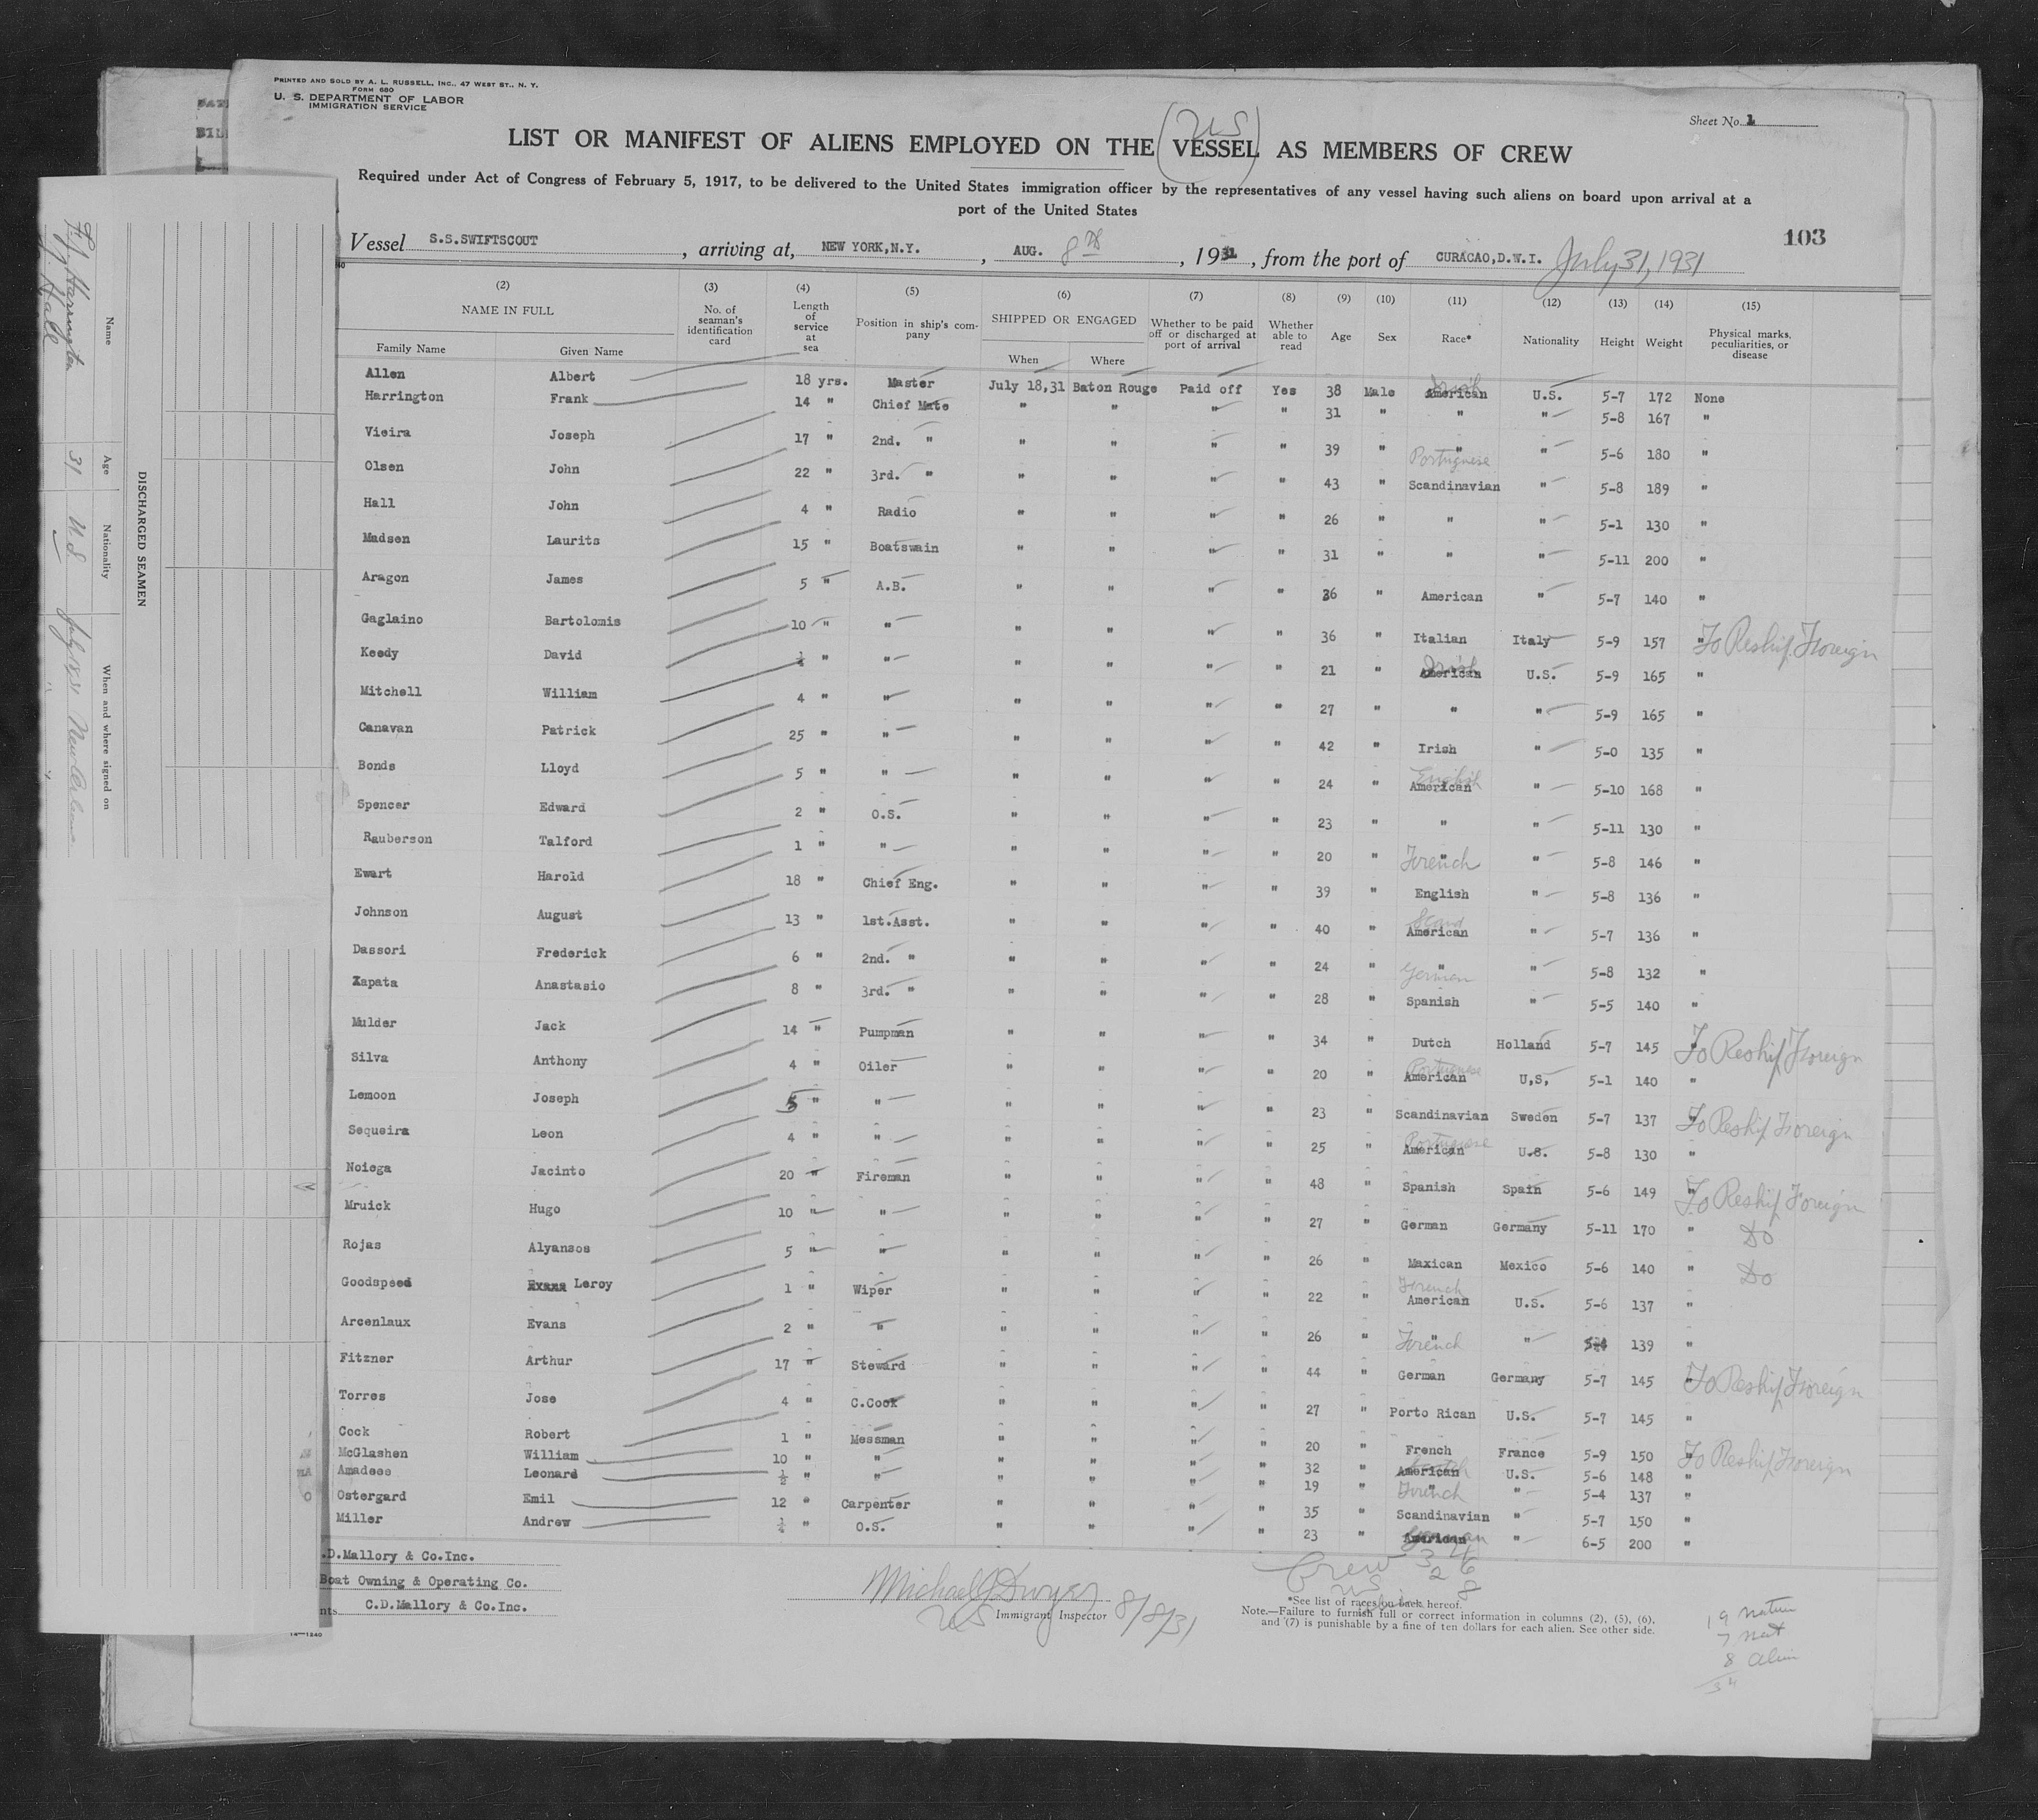 PRINTED AND SOLD BY A. L. RUSSELL, INC., 47 WEST ST., N. Y.
FORM 680
U. S. DEPARTMENT OF LABOR
IMMIGRATION SERVICE
Sheet No. 1
(US)
LIST OR MANIFEST OF ALIENS EMPLOYED ON THE VESSEL AS MEMBERS OF CREW
Required under Act of Congress of February 5, 1917, to be delivered to the United States immigration officer by the representatives of any vessel having such aliens on board upon arrival at a
port of the United States
103
Vessel S.S.SWIFTSCOUT, arriving at, NEW YORK,N.Y., AUG. 8th, 1931, from the port of CURACAO,D.W.I. July 31, 1931
(2) (3) (4) (5) (6) (7) (8) (9) (10) (11) (12) (13) (14) (15)
NAME IN FULL
Family Name Given Name
No. of seaman's identification card
Length of service at sea
Position in ship's company
SHIPPED OR ENGAGED
When Where
Whether to be paid off or discharged at port of arrival
Whether able to read
Age Sex Race* Nationality Height Weight
Physical marks, peculiarities, or disease
Allen Albert 18 yrs. Master July 18,31 Baton Rouge Paid off Yes 38 Male American Irish U.S. 5-7 172 None
Harrington Frank 14 " Chief Mate " " " " 31 " " " 5-8 167 "
Vieira Joseph 17 " 2nd. " " " " " 39 " " Portuguese " 5-6 180 "
Olsen John 22 " 3rd. " " " " " 43 " Scandinavian " 5-8 189 "
Hall John 4 " Radio " " " " 26 " " " 5-1 130 "
Madsen Laurits 15 " Boatswain " " " " 31 " " " 5-11 200 "
Aragon James 5 " A.B. " " " " 36 " American " 5-7 140 "
Gaglaino Bartolomis 10 " " " " " " 36 " Italian Italy 5-9 157 " To Reship Foreign
Keedy David " " " " " " 21 " American Irish U.S. 5-9 165 "
Mitchell William 4 " " " " " " 27 " " " 5-9 165 "
Canavan Patrick 25 " " " " " " 42 " Irish " 5-0 135 "
Bonds Lloyd 5 " " " " " " 24 " American English " 5-10 168 "
Spencer Edward 2 " O.S. " " " " 23 " " " 5-11 130 "
Rauberson Talford 1 " " " " " " 20 " " French " 5-8 146 "
Ewart Harold 18 " Chief Eng. " " " " 39 " English " 5-8 136 "
Johnson August 13 " 1st.Asst. " " " " 40 " American Scand " 5-7 136 "
Dassori Frederick 6 " 2nd. " " " " " 24 " " German " 5-8 132 "
Zapata Anastasio 8 " 3rd. " " " " " 28 " Spanish " 5-5 140 "
Mulder Jack 14 " Pumpman " " " " 34 " Dutch Holland 5-7 145 " To Reship Foreign
Silva Anthony 4 " Oiler " " " " 20 " American Portuguese U,S, 5-1 140 "
Lemoon Joseph 5 " " " " " " 23 " Scandinavian Sweden 5-7 137 " To Reship Foreign
Sequeira Leon 4 " " " " " " 25 " American Portuguese U.S. 5-8 130 "
Noioga Jacinto 20 " Fireman " " " " 48 " Spanish Spain 5-6 149 " To Reship Foreign
Mruick Hugo 10 " " " " " " 27 " German Germany 5-11 170 " Do
Rojas Alyansos 5 " " " " " " 26 " Maxican Mexico 5-6 140 " Do
Goodspeed Leroy 1 " Wiper " " " " 22 " American French U.S. 5-6 137 "
Arcenlaux Evans 2 " " " " " " 26 " " French " 5-4 139 "
Fitzner Arthur 17 " Steward " " " " 44 " German Germany 5-7 145 " To Reship Foreign
Torres Jose 4 " C.Cook " " " " 27 " Porto Rican U.S. 5-7 145 "
Cock Robert 1 " Messman " " " " 20 " French France 5-9 150 " To Reship Foreign
McGlashen William 10 " " " " " " 32 " American Scotch U.S. 5-6 148 "
Amadeee Leonard ½ " " " " " " 19 " " French " 5-4 137 "
Ostergard Emil 12 " Carpenter " " " " 35 " Scandinavian " 5-7 150 "
Miller Andrew ¼ " O.S. " " " " 23 " American German " 6-5 200 "
.D.Mallory & Co.Inc.
Boat Owning & Operating Co.
nts C.D.Mallory & Co.Inc.
Michael J Dwyer
US Immigrant Inspector 8/8/31
Crew 34
US 26
8
*See list of races on back hereof.
Note.—Failure to furnish full or correct information in columns (2), (5), (6),
and (7) is punishable by a fine of ten dollars for each alien. See other side.
19 native
7 nat
8 alien
34
14—1240
DISCHARGED SEAMEN
Name Age Nationality When and where signed on
F. J. Harrington 31 U.S. July 18/31 New Orleans
J. Hall " "